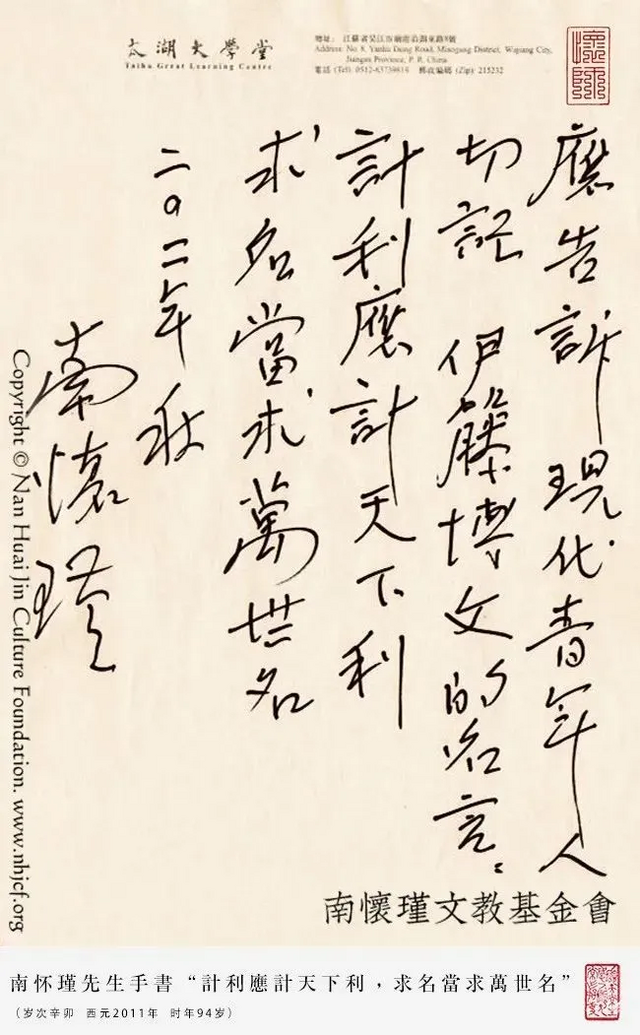 太湖大學堂
Taihu Great Learning Centre
Address: No. 8, Yanhu Dong Road, Miaogang District, Wujiang City,
Jiangsu Province, P. R. China
電話 (Tel) 郵政編碼 (Zip): 215232
懷師
應告訴現代青年人
切記 伊籐博文的名言：
計利應計天下利
求名當求萬世名
二〇一一年秋
南懷瑾
Copyright © Nan Huai Jin Culture Foundation. www.nhjcf.org
南懷瑾文教基金會
南怀瑾先生手書“計利應計天下利，求名當求萬世名”
（岁次辛卯 西元2011年 时年94岁）